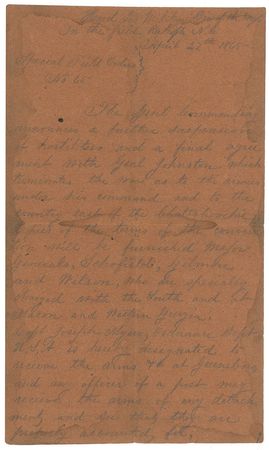 In the field, Raleigh N.C.
April 27th 1865
Special Field Orders
No 65
The Genl Commanding
announces a further suspension
of hostilities and a final agree
ment with Genl Johnston which
terminates the war as to the armies
under his command and to the
country east of the Chattahoochie
of the terms of the conven
tion will be furnished Major
Generals, Schofield, Gilmore
and Wilson, who are specially
charged with the
and Western Georgia.
Capt Joseph Myers, Ordnance Dept
U.S.A is hereby designated to
receive the arms &c at Greensboro
and any officer of a post may
receive the arms of any detach
ment, and see that they are
properly accounted for.